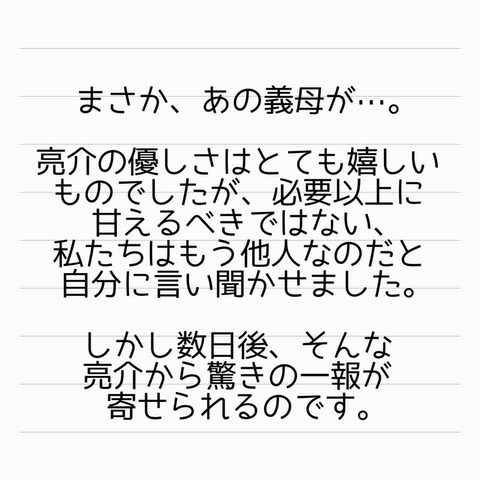 まさか、あの義母が…。
亮介の優しさはとても嬉しい
ものでしたが、必要以上に
甘えるべきではない、
私たちはもう他人なのだと
自分に言い聞かせました。
しかし数日後、そんな
亮介から驚きの一報が
寄せられるのです。